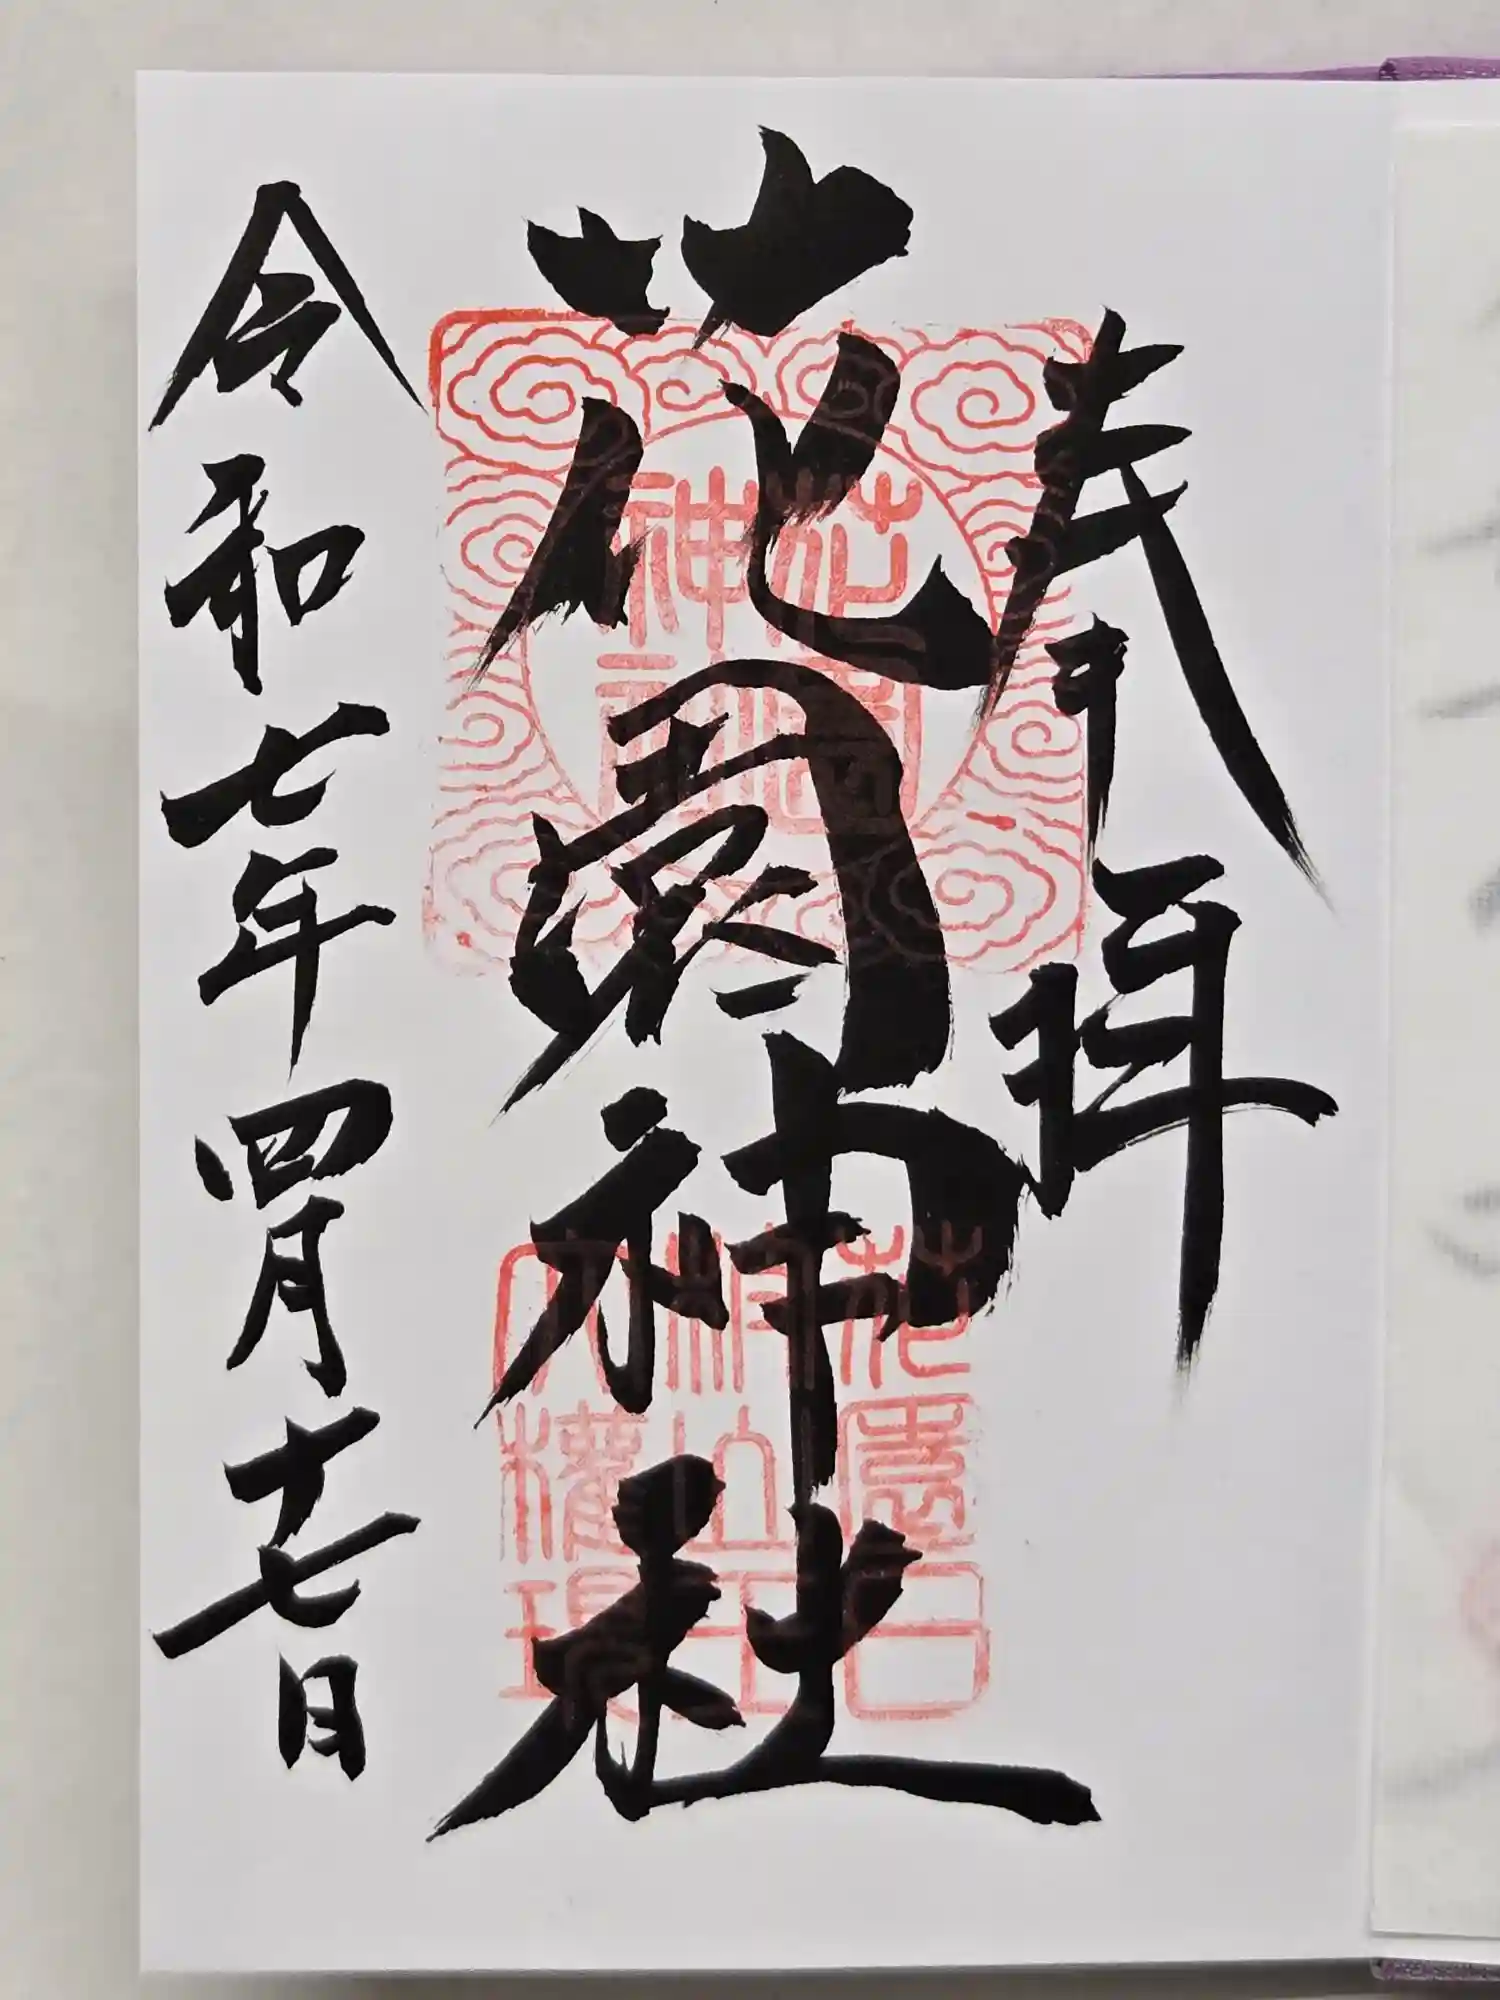 奉拝
花園神社
令和七年四月十七日
花園
神社
花園口
大権現